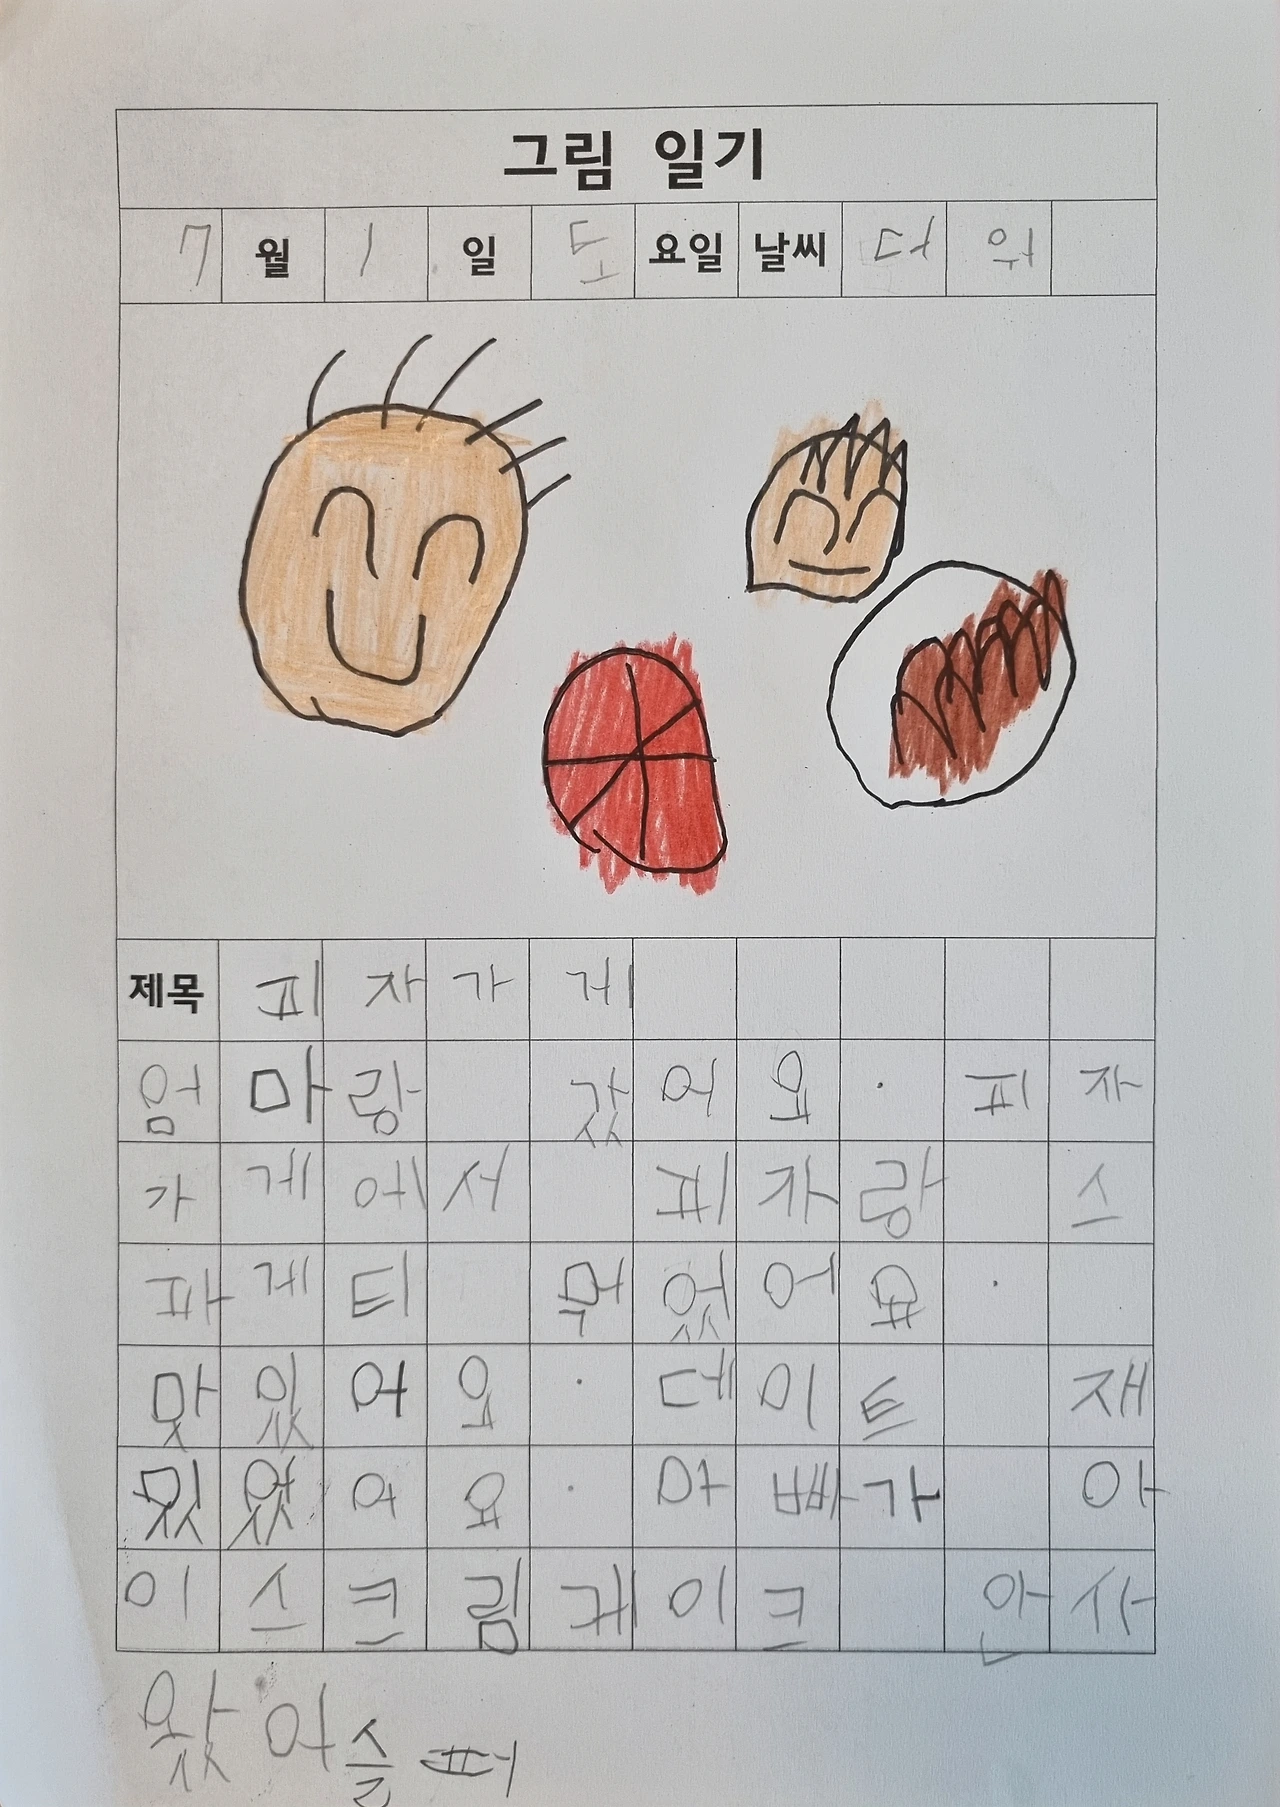 그림 일기
7 월 1 일 토 요일 날씨 더 워
제목 피자가게
엄마랑 갔어요. 피자
가게에서 피자랑 스
파게티 먹었어요.
맛있어요. 데이트 재
밌었어요. 아빠가 아
이스크림케이크 안사
왔어슬퍼